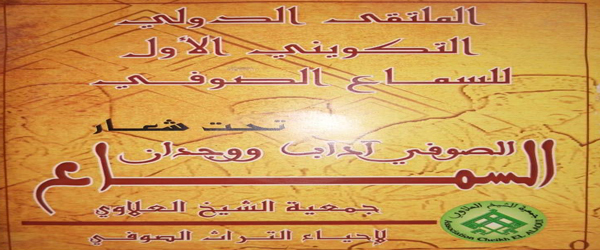 الملتقى الدولي
التكويني الأول
للسماع الصوفي
تحت شعار
السماع الصوفي آداب ووجدان
جمعية الشيخ العلاوي
لإحياء التراث الصوفي
جمعية الشيخ العلاوي
Association Cheikh EL ALAOUI